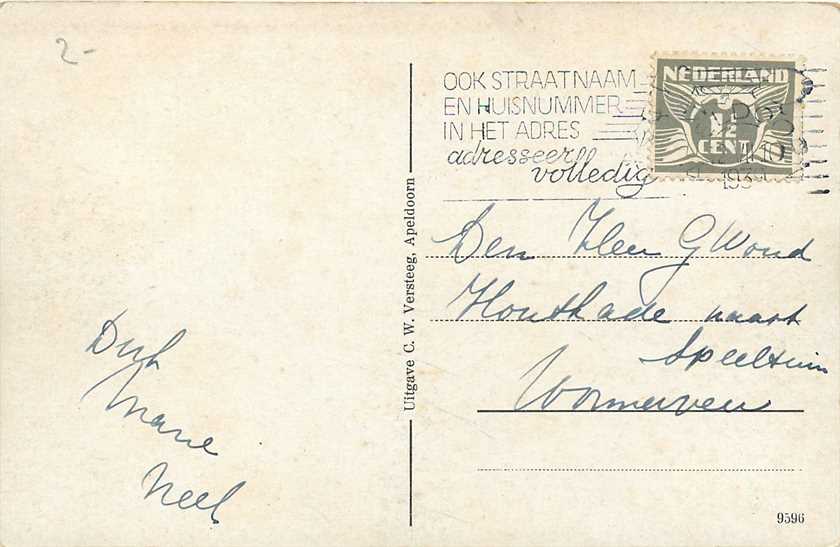 2-
OOK STRAATNAAM
EN HUISNUMMER
IN HET ADRES
adresseer
volledig
NEDERLAND
½
CENT
193
Den Heer G Woud
Houtkade naast
Speeltuin
Wormerveer
Dirk
Marie
Neel
Uitgave C. W. Versteeg, Apeldoorn
9596